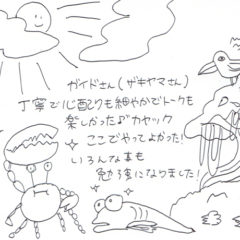 ガイドさん(ザキヤマさん)
丁寧で心配りも細やかでトークも
楽しかった♪カヤック
ここでやってよかった!
いろんな事も
勉強になりました!